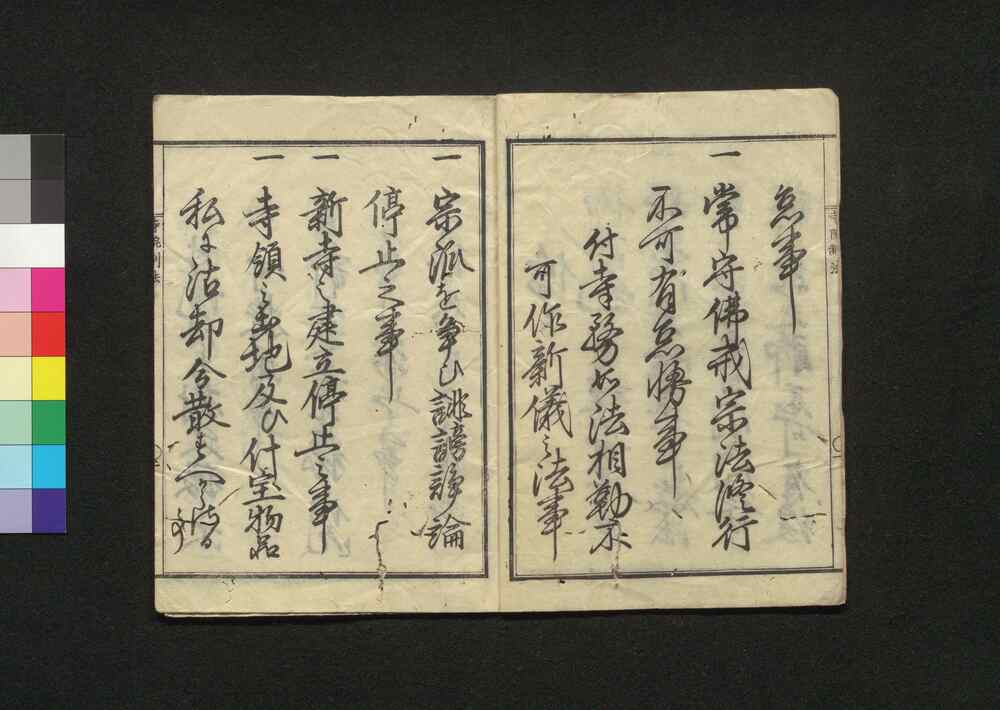 怠事
一 常守佛戒宗法修行
不可有怠惰事
付寺務如法相勤不
可作新儀之法事
寺院制法
一 宗派を争ひ誹謗諍論
停止之事
一 新寺之建立停止之事
一 寺領之土地及ひ付宝物品
私に沽却令散
寺院制法